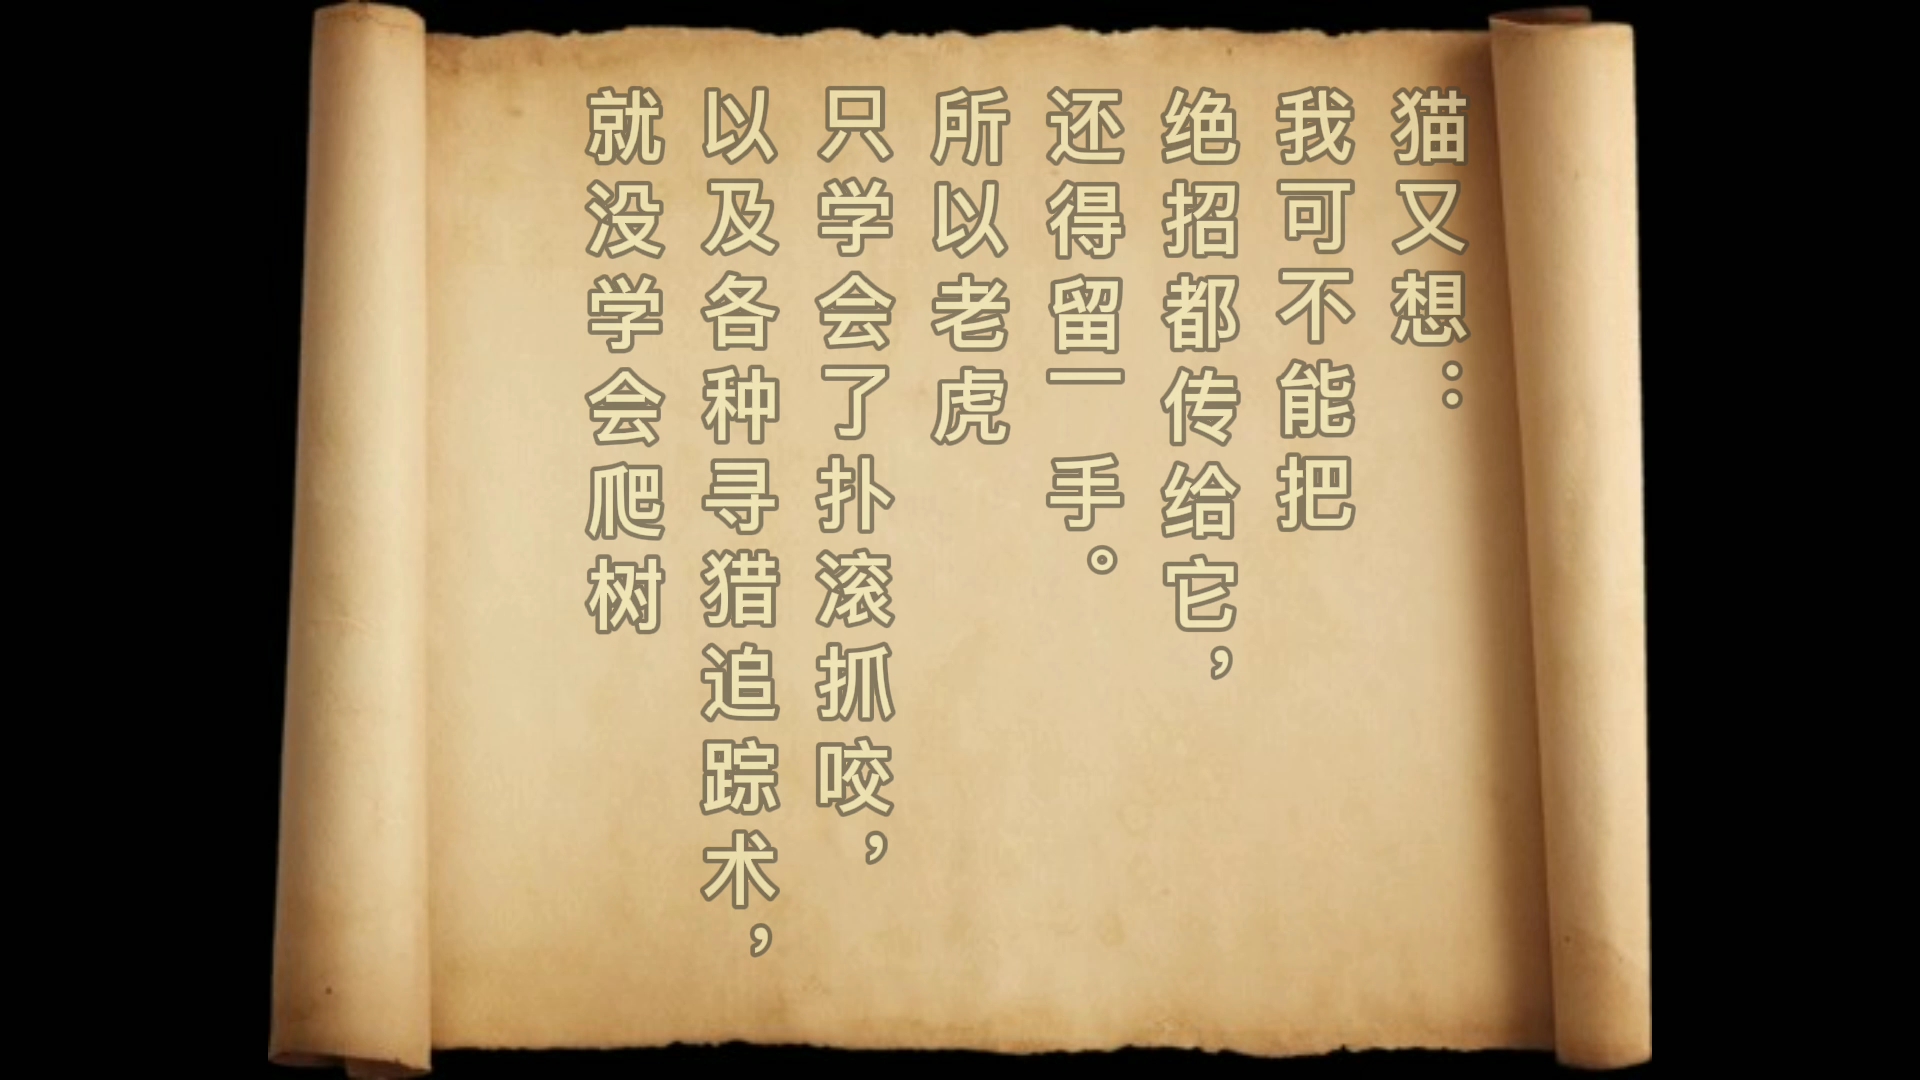 猫又想：
我可不能把
绝招都传给它，
还得留一手。
所以老虎
只学会了扑滚抓咬，
以及各种寻猎追踪术，
就没学会爬树